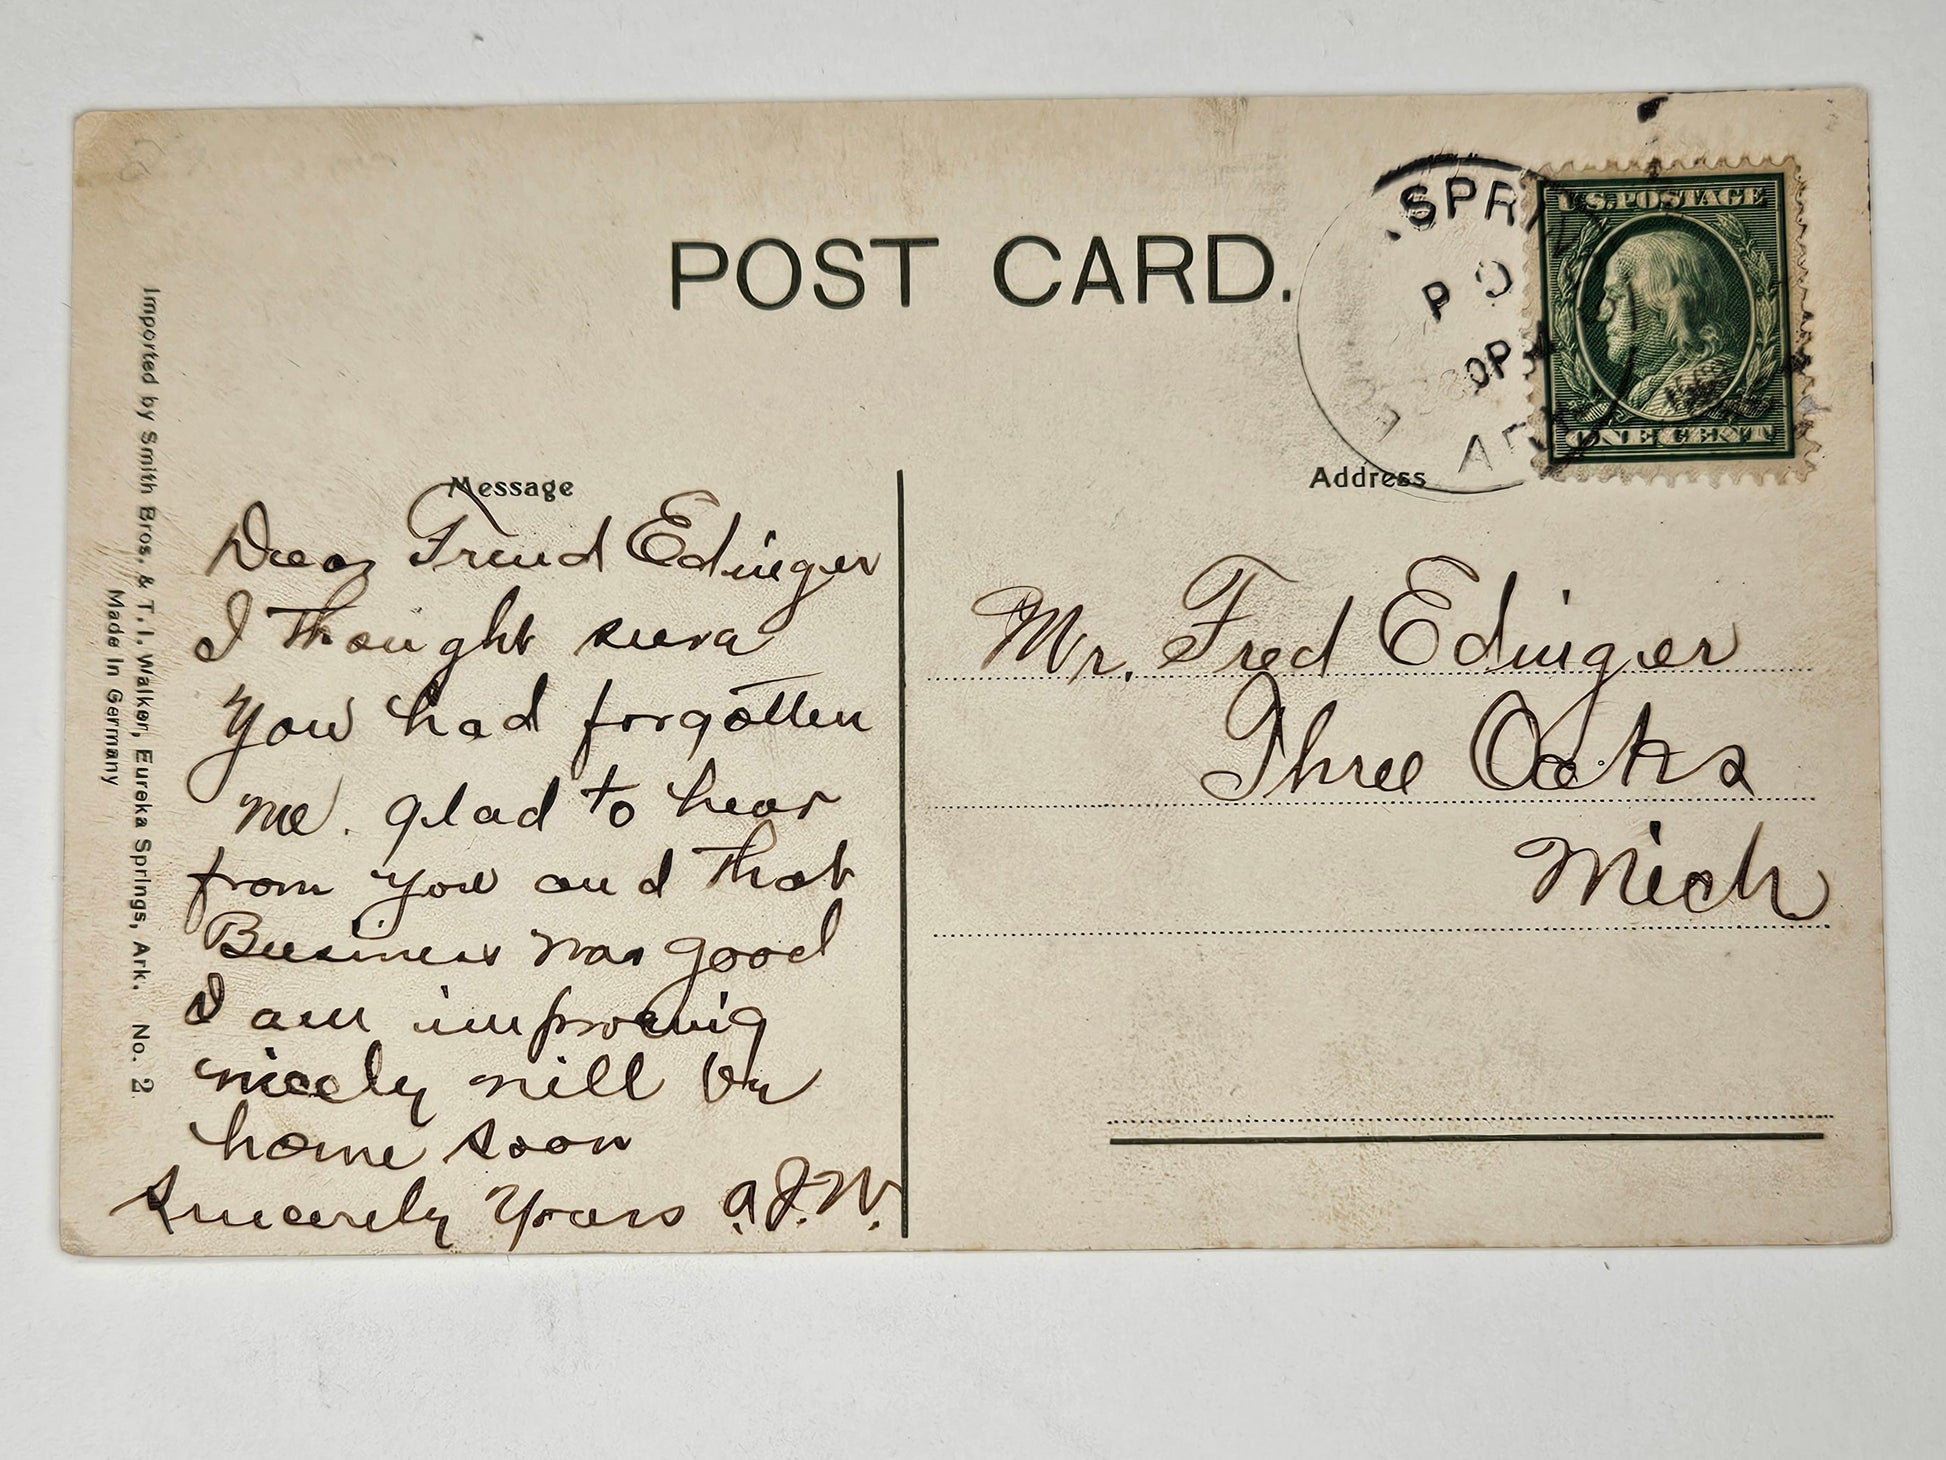 POST CARD.
SPRIN
P O
0P
A
U.S. POSTAGE
ONE CENT
Message
Address
Dear Freind Edinger
I thought sura
You had forgotten
me. glad to hear
from you and that
Business was good
I am improving
nicely will be
home soon
Sincerely Yours A.J.W.
Mr. Fred Edinger
Three Oaks
Mich
Imported by Smith Bros. & T. I. Walker, Eureka Springs, Ark. No. 2
Made in Germany